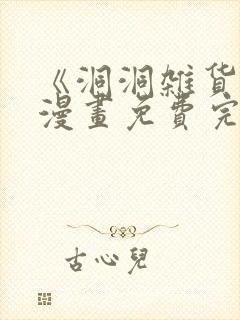 《洞洞雑货
漫畫免費完
古心兒